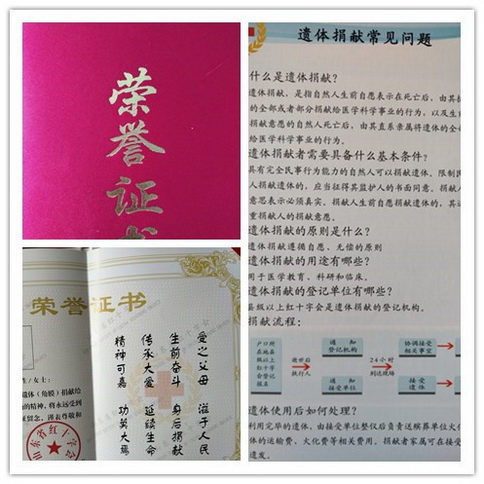 荣誉证书
荣誉证书
生/女士:
遗体(角膜)捐给
的精神,将永远受到
山东省红十字会
受之父母 滋于人民
生前奋斗 身后捐献
传承大爱 延续生命
精神可嘉 功莫大焉
遗体捐献常见问题
什么是遗体捐献?
遗体捐献,是指自然人生前自愿表示在死亡后,由其执
的全部或者部分捐献给医学科学事业的行为,以及生前
捐献意愿的自然人死亡后,由其直系亲属将遗体的全部
给医学科学事业的行为。
遗体捐献者需要具备什么基本条件?
具有完全民事行为能力的自然人可以捐献遗体,限制民
人捐献遗体的,应当征得其监护人的书面同意。捐献人
意思表示必须真实。捐献人生前自愿捐献遗体的,其近
重捐献人的捐献意愿。
遗体捐献的原则是什么?
遗体捐献遵循自愿、无偿的原则
遗体捐献的用途有哪些?
用于医学教育、科研和临床。
遗体捐献的登记单位有哪些?
县级以上红十字会是遗体捐献的登记机构。
捐献流程:
户口所
在地县
级以上
红十字
会登记
报名
逝世后
执行人
通知
登记机构
通知
接受单位
24小时
到达现场
协调接受
相关事宜
接受
遗体
遗体使用后如何处理?
利用完毕的遗体,由接受单位整仪后负责送殡葬单位火化
体的运输费、火化费等相关费用。捐献者家属可在接受
遗发。